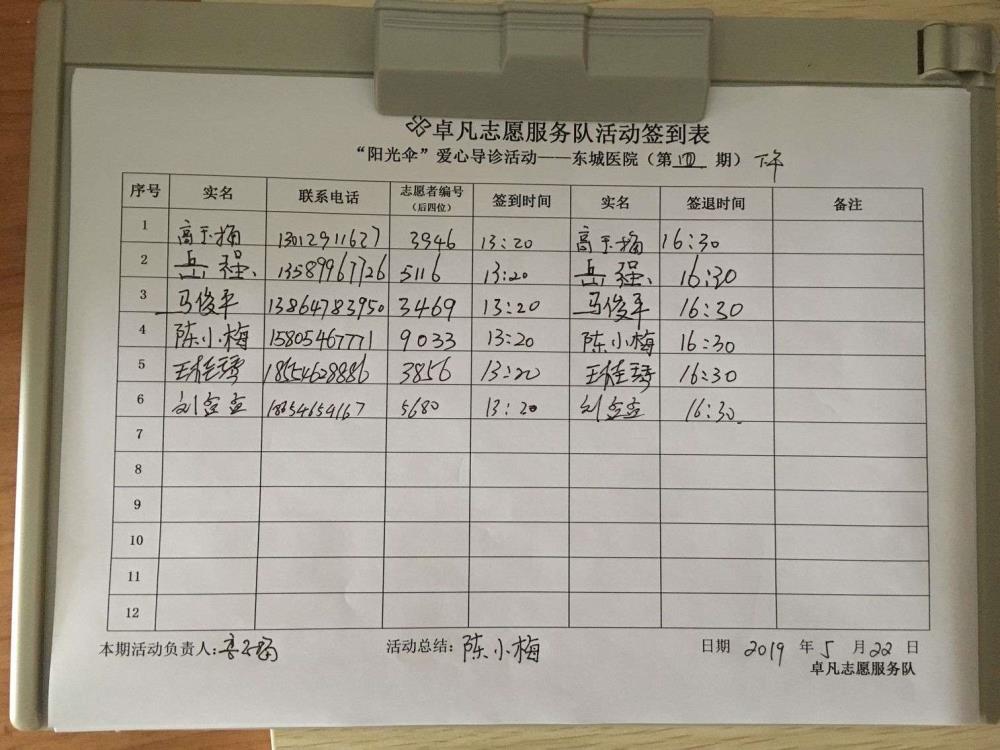 卓凡志愿服务队活动签到表
“阳光伞”爱心导诊活动——东城医院（第四期）下午
序号 实名 联系电话 志愿者编号（后四位） 签到时间 实名 签退时间 备注
1 高玉梅 13012911627 3946 13:20 高玉梅 16:30
2 岳强 13589967726 5116 13:20 岳强 16:30
3 马俊平 13864783950 3469 13:20 马俊平 16:30
4 陈小梅 15805467771 9033 13:20 陈小梅 16:30
5 王桂琴 18554628886 3856 13:20 王桂琴 16:30
6 刘 5680 13:20 刘 16:30
7
8
9
10
11
12
本期活动负责人: 活动总结: 陈小梅 日期 2019 年 5 月 22 日
卓凡志愿服务队